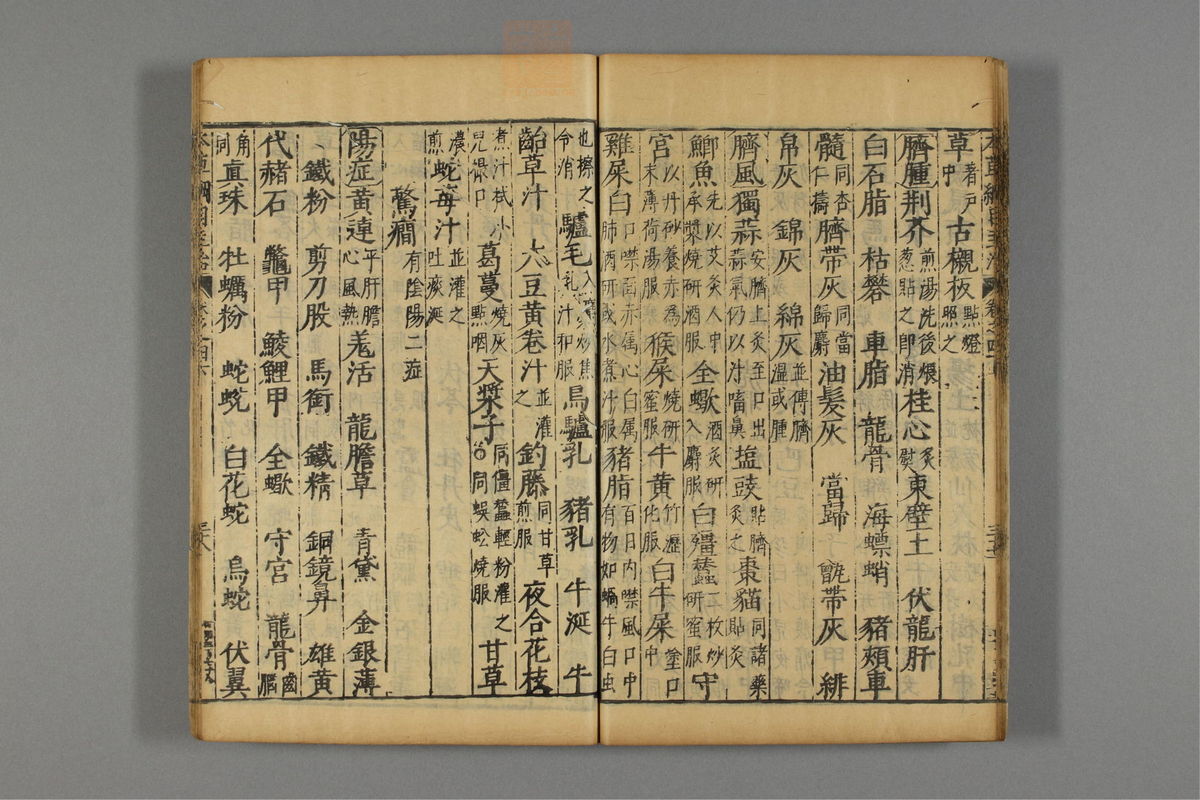 草著戶中古櫬板點燈照之
臍腫荆芥煎湯洗後煨葱貼之即消桂心炙熨東壁土 伏龍肝
白石脂 枯礬 車脂 龍骨 海螵蛸 豬頰車
髓同杏仁擣臍帶灰同當歸麝油髮灰 當歸 甑帶灰 緋
帛灰 錦灰 綿灰並傅臍濕或腫
臍風獨蒜安臍上灸至口出蒜氣仍以汁㗜鼻鹽豉貼臍灸之棗猫同諸藥貼灸
鯽魚先以艾灸人中承漿燒研酒服全蠍酒炙研入麝服白殭蠶二枚炒研蜜服守
宮以丹砂養赤為末薄荷湯服猴屎燒研蜜服牛黃竹瀝化服白牛屎塗口中
雞屎白口噤面赤属心白属肺酒研或水煮汁服豬脂百日內噤風口中有物如蝸牛白虫
也擦之令消驢毛入麝炒焦乳汁和服烏驢乳 豬乳 牛涎 牛
齝草汁 大豆黃卷汁並灌之釣藤同甘草煎服夜合花枝
煮汁拭小兒撮口葛蔓燒灰點咽天漿子同僵蠶輕粉灌之〇同蜈蚣燒服 甘草
濃煎蛇莓汁並灌之吐痰涎
驚癎有陰陽二症
陽症黃連平肝膽心風熱羗活 龍膽草 青黛 金銀薄
鐵粉 剪刀股 馬銜 鐵精 銅鏡鼻 雄黃
代赭石 鼈甲 鯪鯉甲 全蠍 守宮 龍骨齒腦
角同真珠 牡蠣粉 蛇蛻 白花蛇 烏蛇 伏翼